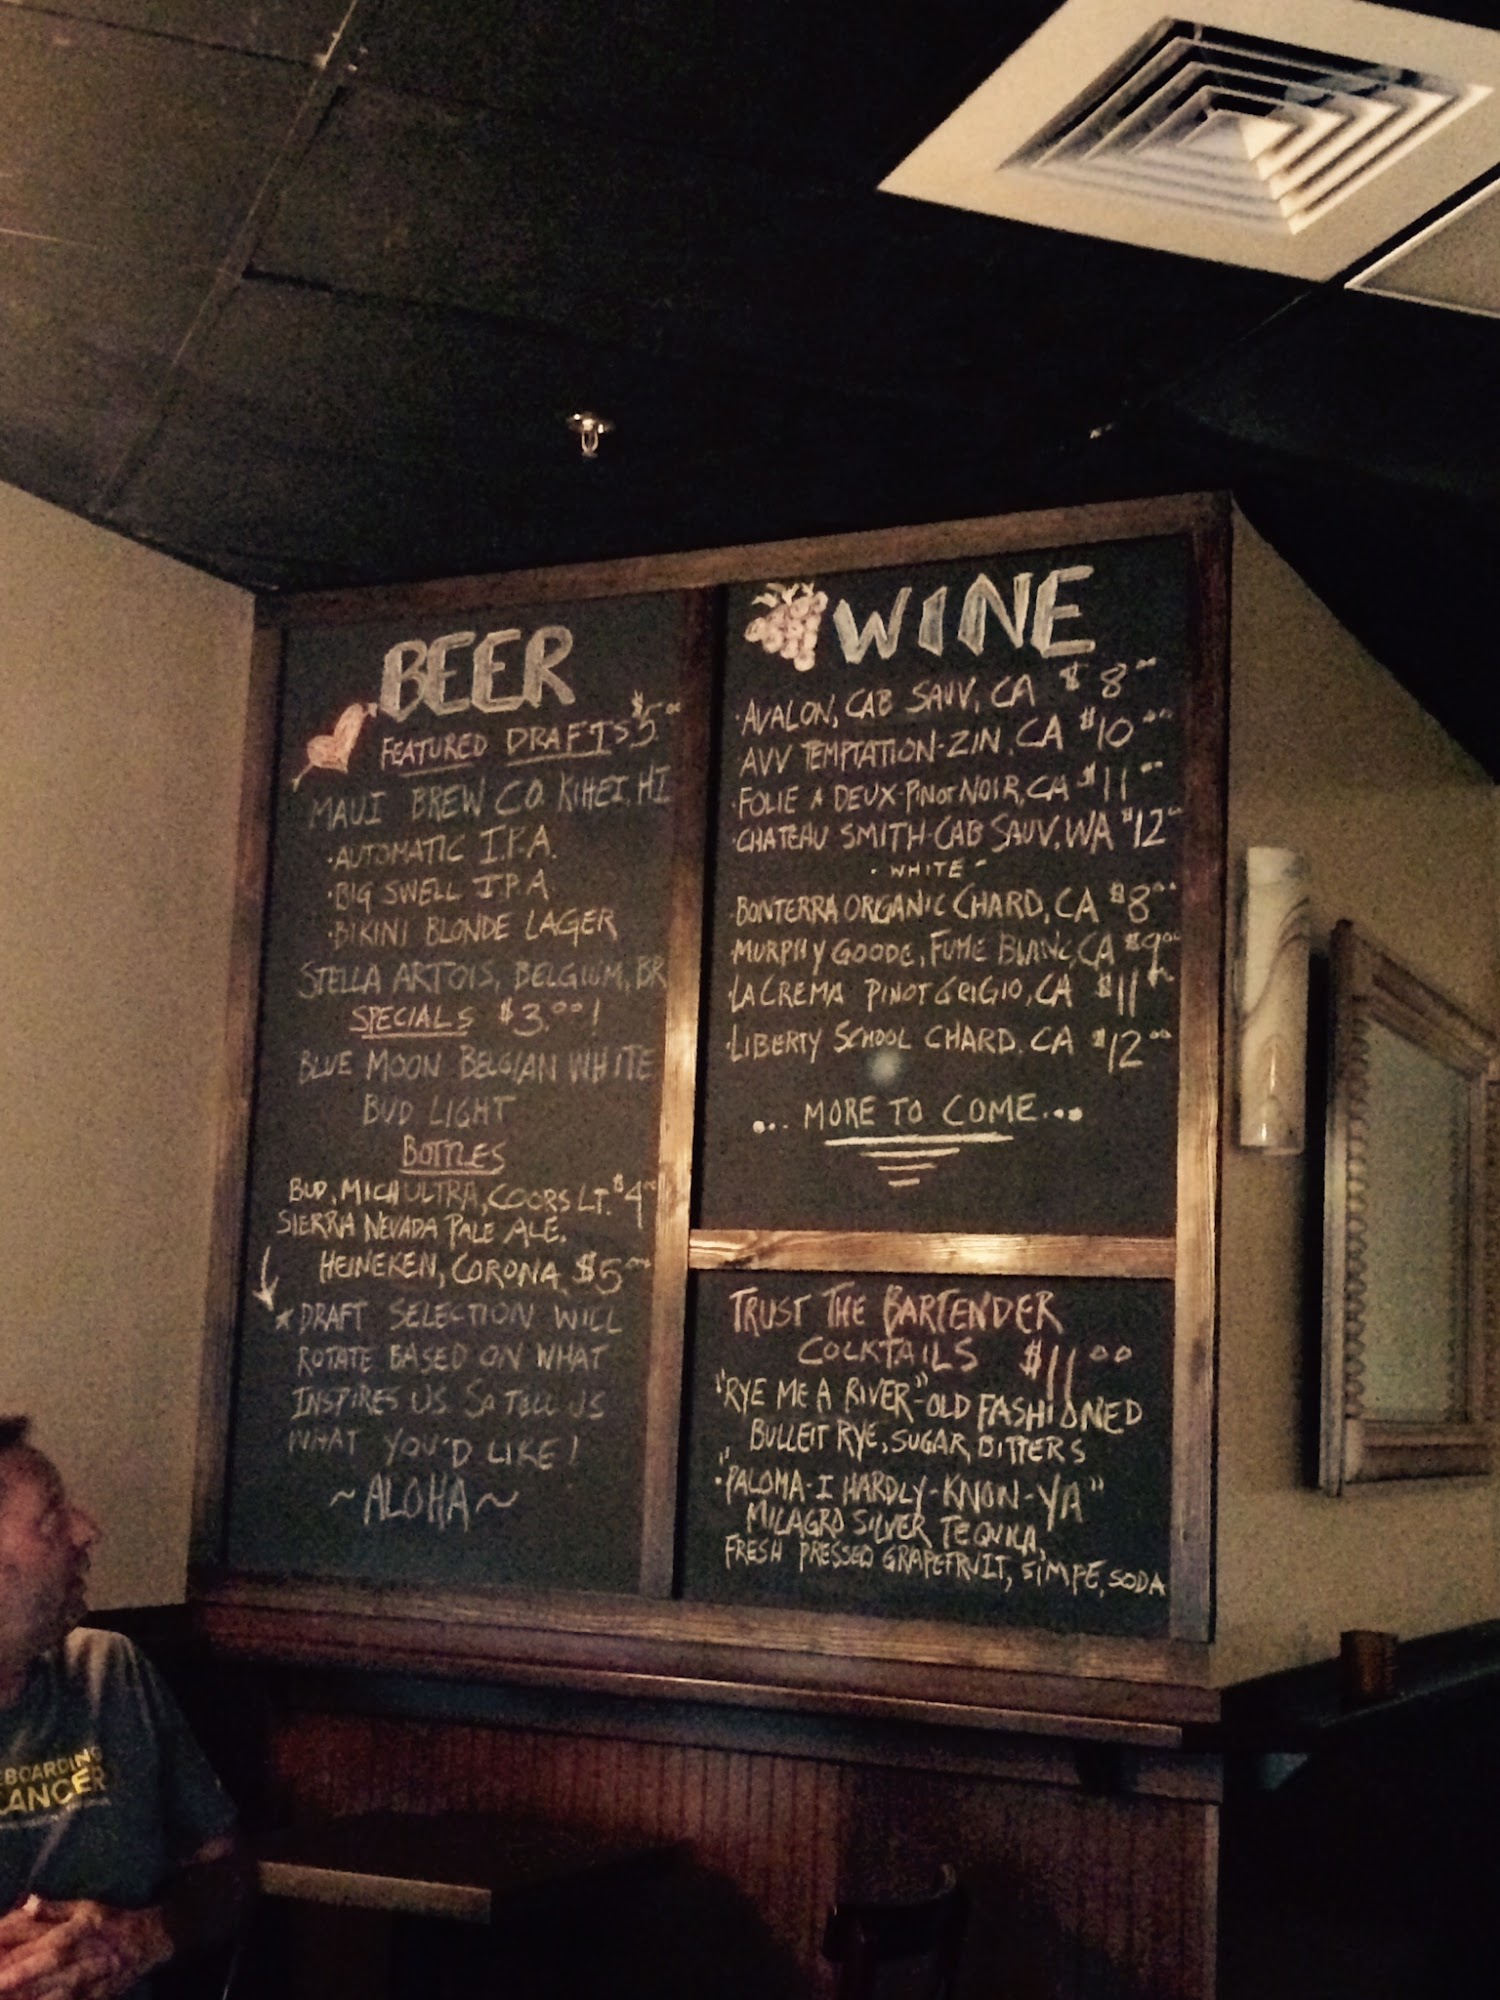 BEER
FEATURED DRAFTS $5.00
MAUI BREW CO. KIHEI, HI
·AUTOMATIC I.P.A.
·BIG SWELL I.P.A.
·BIKINI BLONDE LAGER
STELLA ARTOIS, BELGIUM, BR
SPECIALS $3.00!
BLUE MOON BELGIAN WHITE
BUD LIGHT
BOTTLES
BUD, MICH ULTRA, COORS LT. $4.00
SIERRA NEVADA PALE ALE.
HEINEKEN, CORONA $5.00
*DRAFT SELECTION WILL
ROTATE BASED ON WHAT
INSPIRES US. SO TELL US
WHAT YOU'D LIKE!
~ALOHA~
WINE
·AVALON, CAB SAUV, CA $8.00
AVV TEMPTATION-ZIN, CA $10.00
·FOLIE A DEUX-PINOT NOIR, CA $11.00
·CHATEAU SMITH-CAB SAUV, WA $12.00
-WHITE-
·BONTERRA ORGANIC CHARD, CA $8.00
·MURPHY GOODE, FUME BLANC, CA $9.00
·LA CREMA PINOT GRIGIO, CA $11.00
·LIBERTY SCHOOL CHARD. CA $12.00
... MORE TO COME...
TRUST THE BARTENDER
COCKTAILS $11.00
"RYE ME A RIVER"-OLD FASHIONED
BULLEIT RYE, SUGAR, BITTERS
·"PALOMA-I HARDLY-KNON-YA"
MILAGRO SILVER TEQUILA,
FRESH PRESSED GRAPEFRUIT, SIMPE, SODA
BOARDING
CANCER